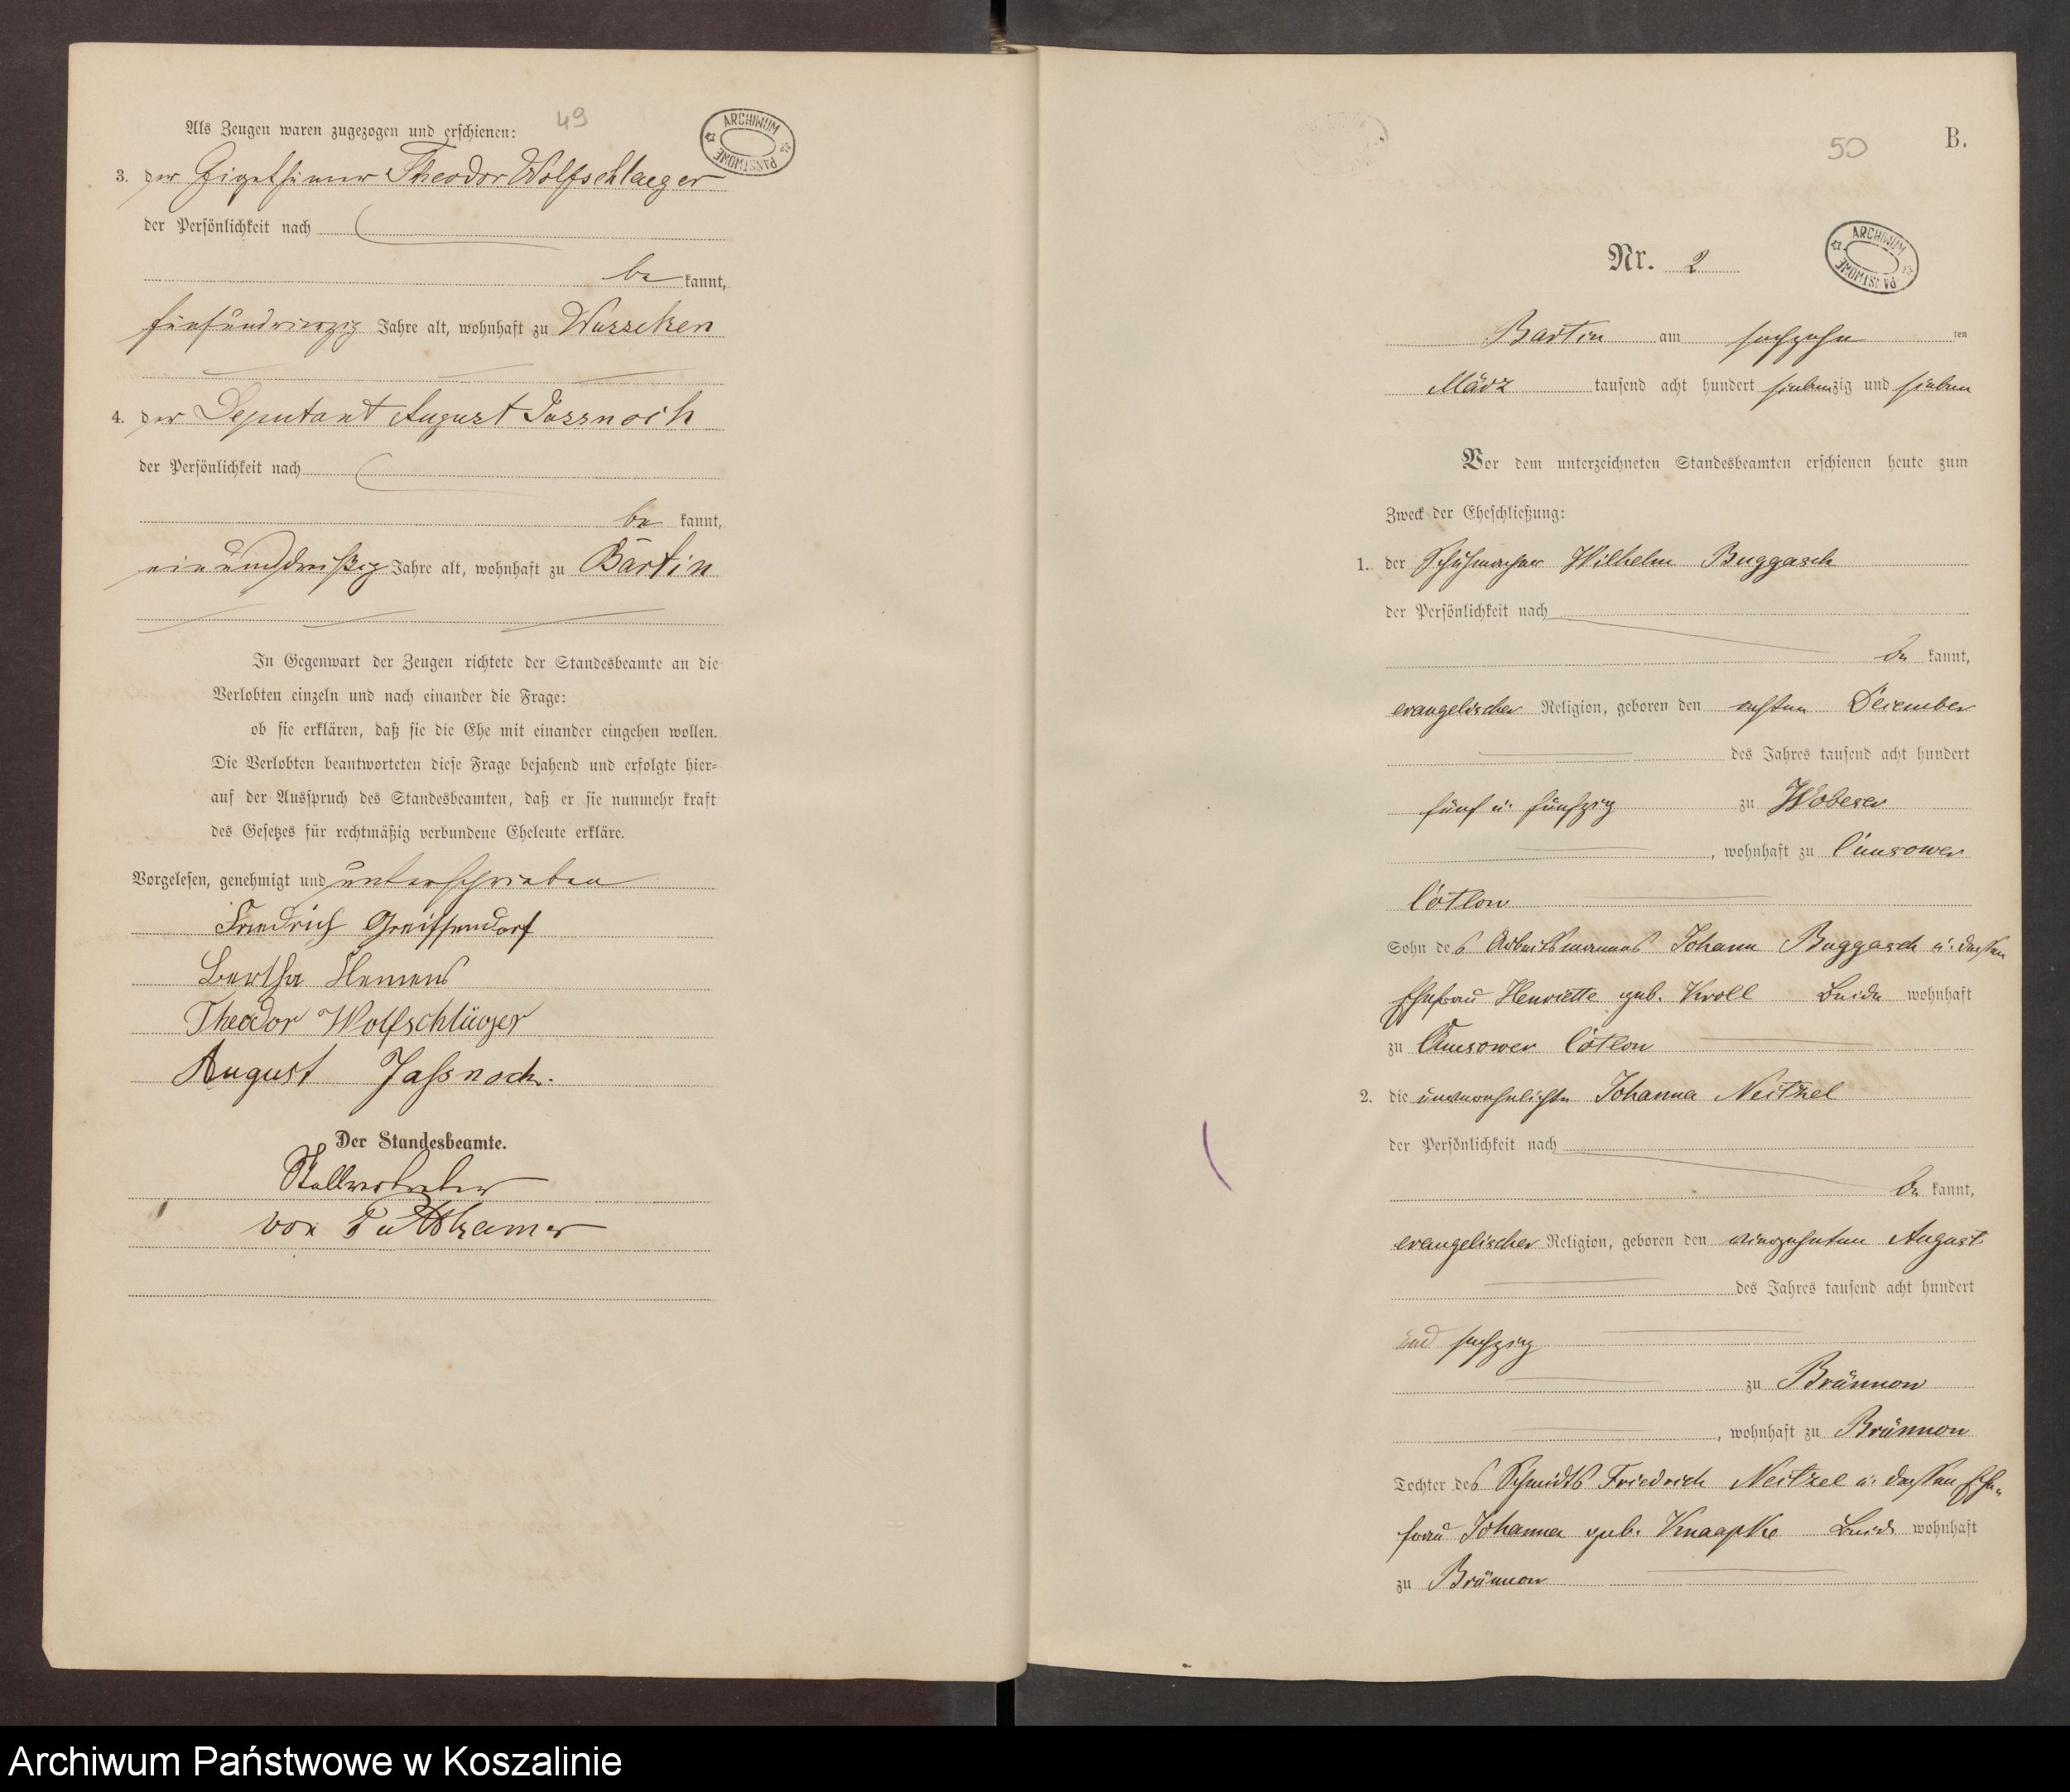 49
Als Zeugen waren zugezogen und erschienen:
ARCHIWUM PAŃSTWOWE
3. der Eigethümer Theodor Wolfschlaeger
der Persönlichkeit nach
be kannt,
fünfundvierzig Jahre alt, wohnhaft zu Wusseken
4. der Deputant August Jassnoch
der Persönlichkeit nach
be kannt,
einunddreißig Jahre alt, wohnhaft zu Bartin
In Gegenwart der Zeugen richtete der Standesbeamte an die
Verlobten einzeln und nach einander die Frage:
ob sie erklären, daß sie die Ehe mit einander eingehen wollen.
Die Verlobten beantworteten diese Frage bejahend und erfolgte hier-
auf der Ausspruch des Standesbeamten, daß er sie nunmehr kraft
des Gesetzes für rechtmäßig verbundene Eheleute erkläre.
Vorgelesen, genehmigt und unterschrieben
Friedrich Greiffendorf
Bertha
Theodor Wolfschläger
August Jassnoch.
Der Standesbeamte.
Stellvertreter
von Puttkamer
50
B.
ARCHIWUM PAŃSTWOWE
Nr. 2
Bartin am sechzehn ten
März tausend acht hundert siebenzig und sieben
Vor dem unterzeichneten Standesbeamten erschienen heute zum
Zweck der Eheschließung:
1. der Schuhmacher Wilhelm Buggasch
der Persönlichkeit nach
be kannt,
evangelischer Religion, geboren den achten December
des Jahres tausend acht hundert
fünf u. fünfzig zu Wobeser
, wohnhaft zu
Sohn des Arbeitsmannes Johann Buggasch u. dessen
Ehefrau Henriette geb. Kroll Beide wohnhaft
zu
2. die unverehelichte Johanna Neitzel
der Persönlichkeit nach
be kannt,
evangelischer Religion, geboren den vierzehnten August
des Jahres tausend acht hundert
und sechzig
zu Brünnow
, wohnhaft zu Brünnow
Tochter des Schmidts Friedrich Neitzel u. dessen Ehe-
frau Johanna geb. Knaapke Beide wohnhaft
zu Brünnow
Archiwum Państwowe w Koszalinie